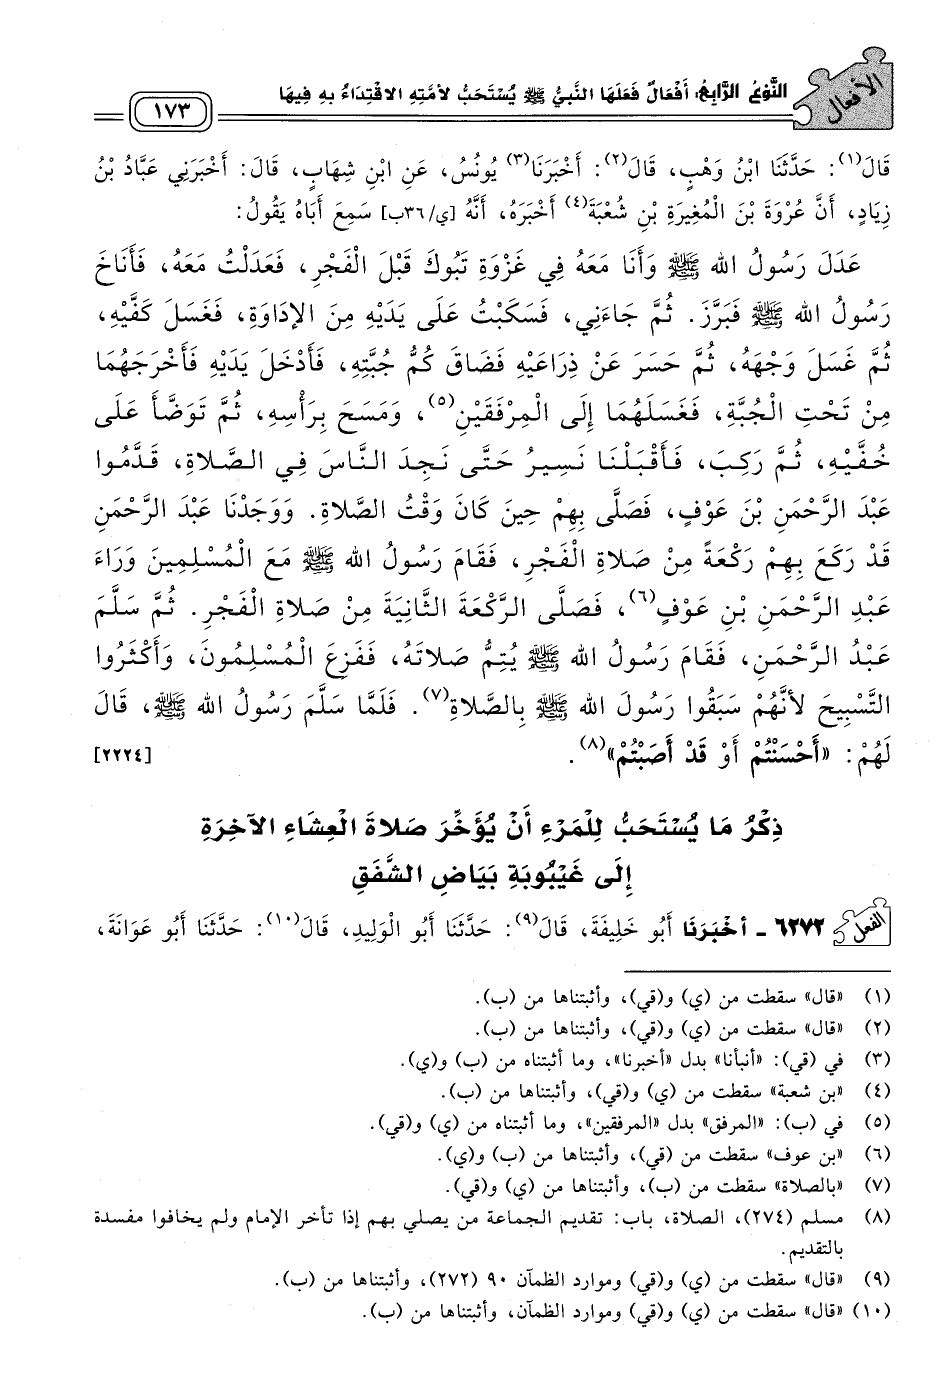 الأفعال
النَّوْعُ الرَّابِعُ: أَفْعَالٌ فَعَلَهَا النَّبِيُّ ﷺ يُسْتَحَبُّ لأُمَّتِهِ الاقْتِدَاءُ بِهِ فِيهَا
١٧٣
قَالَ(١): حَدَّثَنَا ابْنُ وَهْبٍ، قَالَ(٢): أَخْبَرَنَا(٣) يُونُسُ، عَنِ ابْنِ شِهَابٍ، قَالَ: أَخْبَرَنِي عَبَّادُ بْنُ
زِيَادٍ، أَنَّ عُرْوَةَ بْنَ الْمُغِيرَةِ بْنِ شُعْبَةَ(٤) أَخْبَرَهُ، أَنَّهُ [ي/٣٦ب] سَمِعَ أَبَاهُ يَقُولُ:
عَدَلَ رَسُولُ الله ﷺ وَأَنَا مَعَهُ فِي غَزْوَةِ تَبُوكَ قَبْلَ الْفَجْرِ، فَعَدَلْتُ مَعَهُ، فَأَنَاخَ
رَسُولُ الله ﷺ فَبَرَّزَ. ثُمَّ جَاءَنِي، فَسَكَبْتُ عَلَى يَدَيْهِ مِنَ الإدَاوَةِ، فَغَسَلَ كَفَّيْهِ،
ثُمَّ غَسَلَ وَجْهَهُ، ثُمَّ حَسَرَ عَنْ ذِرَاعَيْهِ فَضَاقَ كُمُّ جُبَّتِهِ، فَأَدْخَلَ يَدَيْهِ فَأَخْرَجَهُمَا
مِنْ تَحْتِ الْجُبَّةِ، فَغَسَلَهُمَا إِلَى الْمِرْفَقَيْنِ(٥)، وَمَسَحَ بِرَأْسِهِ، ثُمَّ تَوَضَّأَ عَلَى
خُفَّيْهِ، ثُمَّ رَكِبَ، فَأَقْبَلْنَا نَسِيرُ حَتَّى نَجِدَ النَّاسَ فِي الصَّلاةِ، قَدَّمُوا
عَبْدَ الرَّحْمَنِ بْنَ عَوْفٍ، فَصَلَّى بِهِمْ حِينَ كَانَ وَقْتُ الصَّلاةِ. وَوَجَدْنَا عَبْدَ الرَّحْمَنِ
قَدْ رَكَعَ بِهِمْ رَكْعَةً مِنْ صَلاةِ الْفَجْرِ، فَقَامَ رَسُولُ الله ﷺ مَعَ الْمُسْلِمِينَ وَرَاءَ
عَبْدِ الرَّحْمَنِ بْنِ عَوْفٍ(٦)، فَصَلَّى الرَّكْعَةَ الثَّانِيَةَ مِنْ صَلاةِ الْفَجْرِ. ثُمَّ سَلَّمَ
عَبْدُ الرَّحْمَنِ، فَقَامَ رَسُولُ الله ﷺ يُتِمُّ صَلاتَهُ، فَفَزِعَ الْمُسْلِمُونَ، وَأَكْثَرُوا
التَّسْبِيحَ لأنَّهُمْ سَبَقُوا رَسُولَ الله ﷺ بِالصَّلاةِ(٧). فَلَمَّا سَلَّمَ رَسُولُ الله ﷺ، قَالَ
لَهُمْ: «أَحْسَنْتُمْ أَوْ قَدْ أَصَبْتُمْ»(٨). [٢٢٢٤]
ذِكْرُ مَا يُسْتَحَبُّ لِلْمَرْءِ أَنْ يُؤَخِّرَ صَلاةَ الْعِشَاءِ الآخِرَةِ
إِلَى غَيْبُوبَةِ بَيَاضِ الشَّفَقِ
الفعل ٦٢٧٢ - أَخْبَرَنَا أَبُو خَلِيفَةَ، قَالَ(٩): حَدَّثَنَا أَبُو الْوَلِيدِ، قَالَ(١٠): حَدَّثَنَا أَبُو عَوَانَةَ،
(١) «قال» سقطت من (ي) و(قي)، وأثبتناها من (ب).
(٢) «قال» سقطت من (ي) و(قي)، وأثبتناها من (ب).
(٣) في (قي): «أنبأنا» بدل «أخبرنا»، وما أثبتناه من (ب) و(ي).
(٤) «بن شعبة» سقطت من (ي) و(قي)، وأثبتناها من (ب).
(٥) في (ب): «المرفق» بدل «المرفقين»، وما أثبتناه من (ي) و(قي).
(٦) «بن عوف» سقطت من (قي)، وأثبتناها من (ب) و(ي).
(٧) «بالصلاة» سقطت من (ب)، وأثبتناها من (ي) و(قي).
(٨) مسلم (٢٧٤)، الصلاة، باب: تقديم الجماعة من يصلي بهم إذا تأخر الإمام ولم يخافوا مفسدة
بالتقديم.
(٩) «قال» سقطت من (ي) و(قي) وموارد الظمآن ٩٠ (٢٧٢)، وأثبتناها من (ب).
(١٠) «قال» سقطت من (ي) و(قي) وموارد الظمآن، وأثبتناها من (ب).